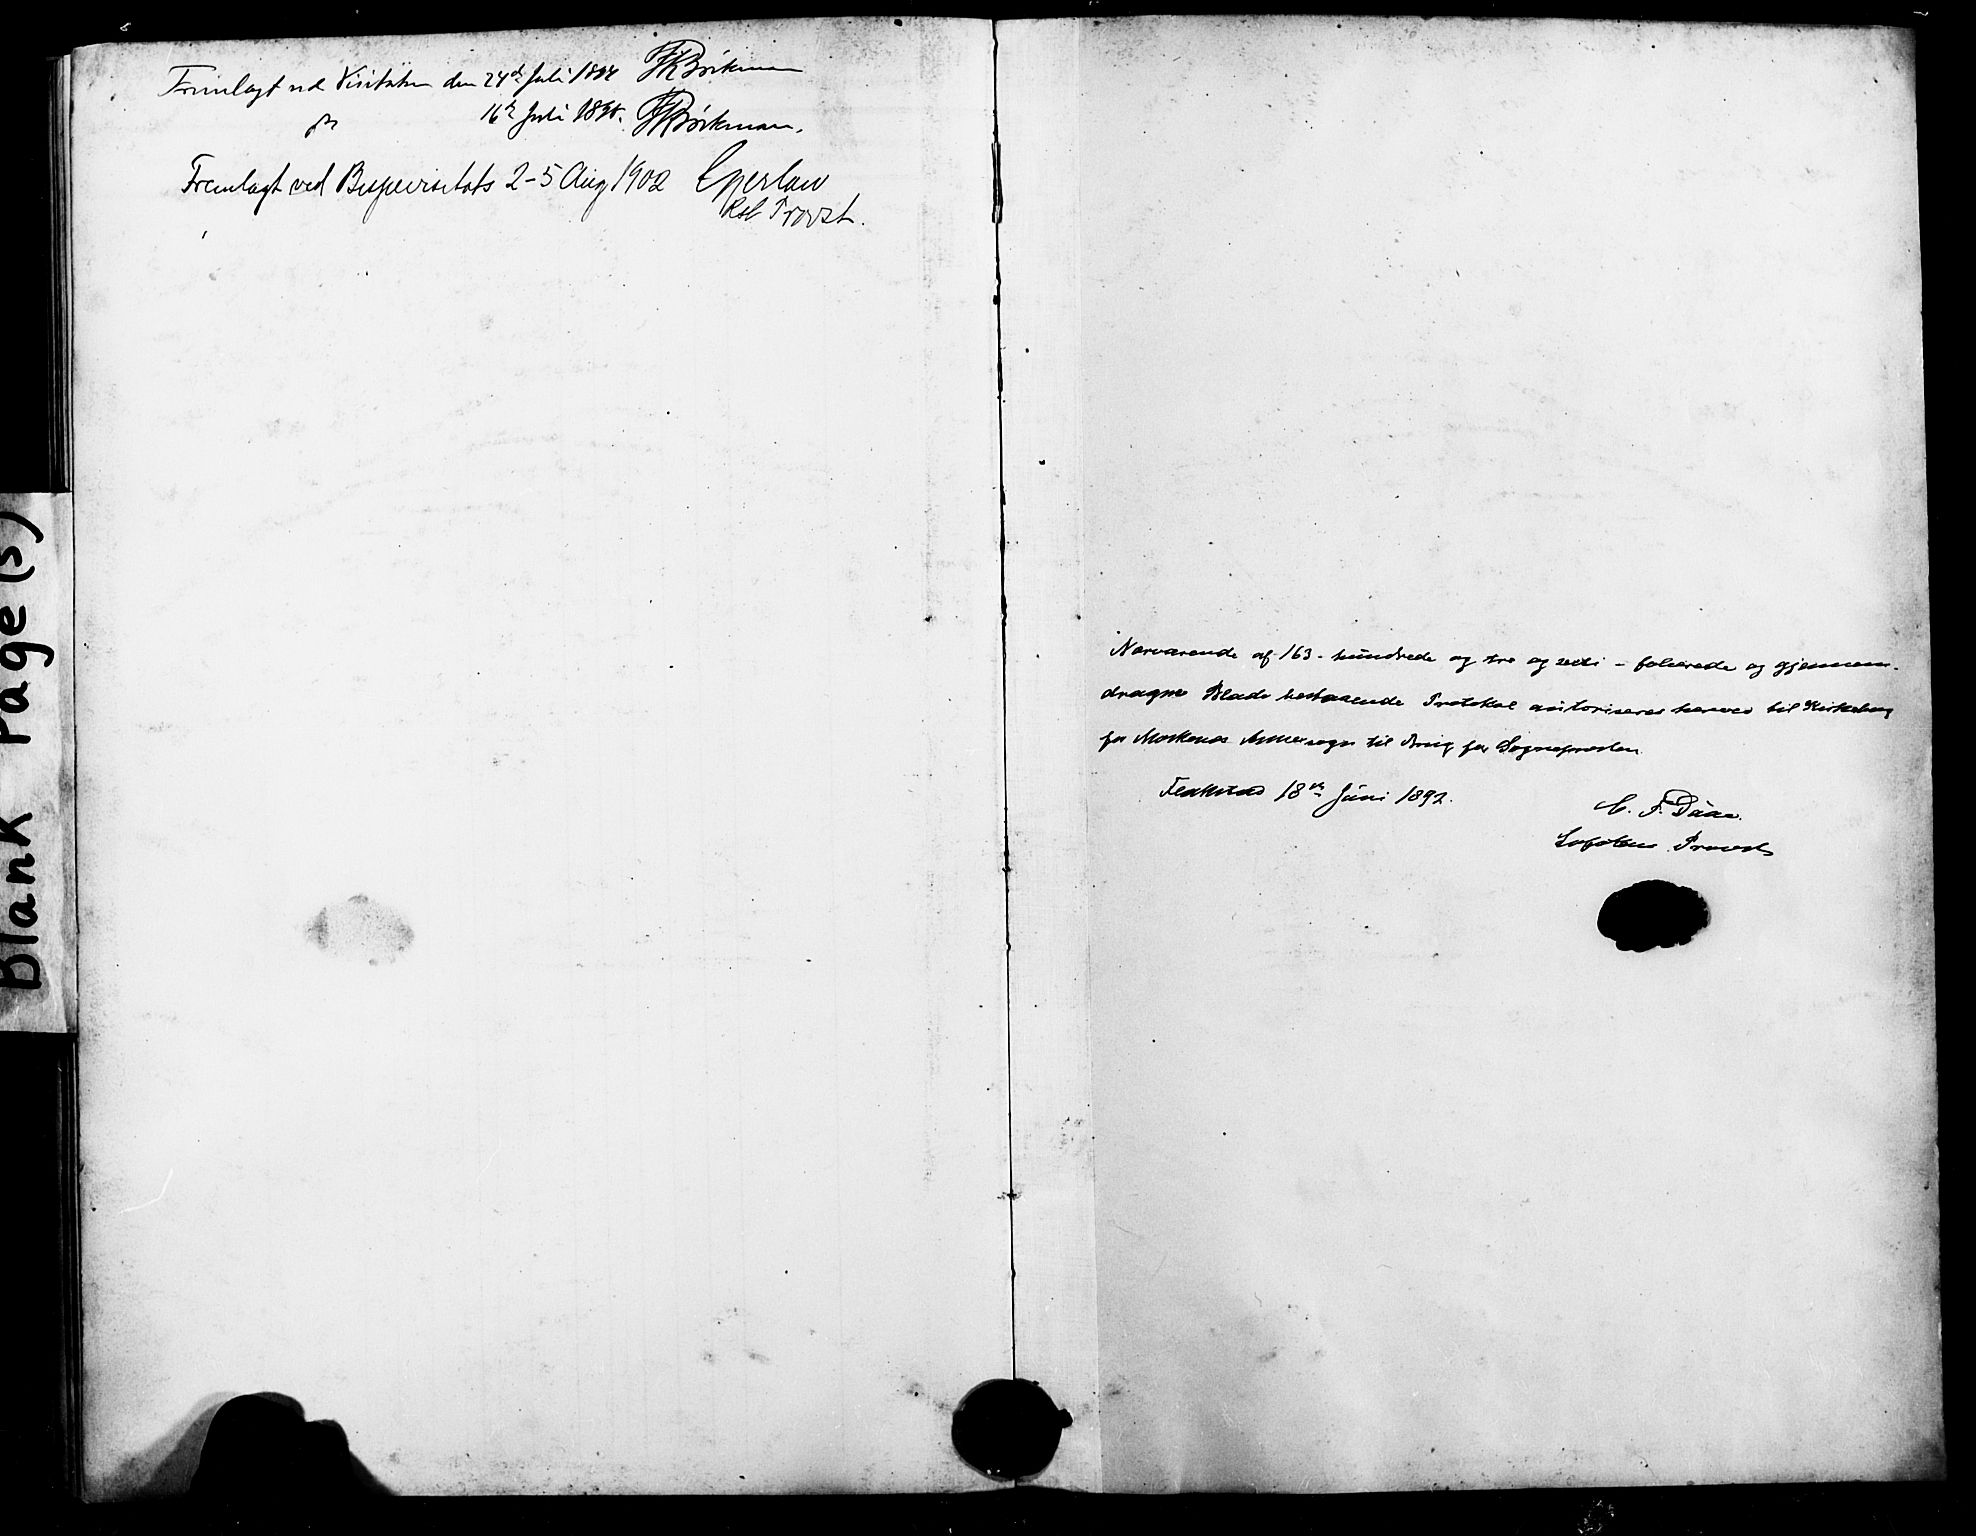 Fremlagt ved Visitatsen den 24de Juli 1894 JKBörkman
16de Juli 189. JKBörkman.
Fremlagt ved Bispevisitats 2-5 Aug 1902
Kst Provst.
Nærværende af 163 - hundrede og tre og seti - folierede og gjennem-
dragne Blade bestaaende Protokol autoriseres herved til Kirkebog
for Moskenæs Annexsogn til Brug for Sognepresten.
Flakstad 18de Juni 1892.
C. F. Daae.
Lofotens Provsti
Blank Page (s)